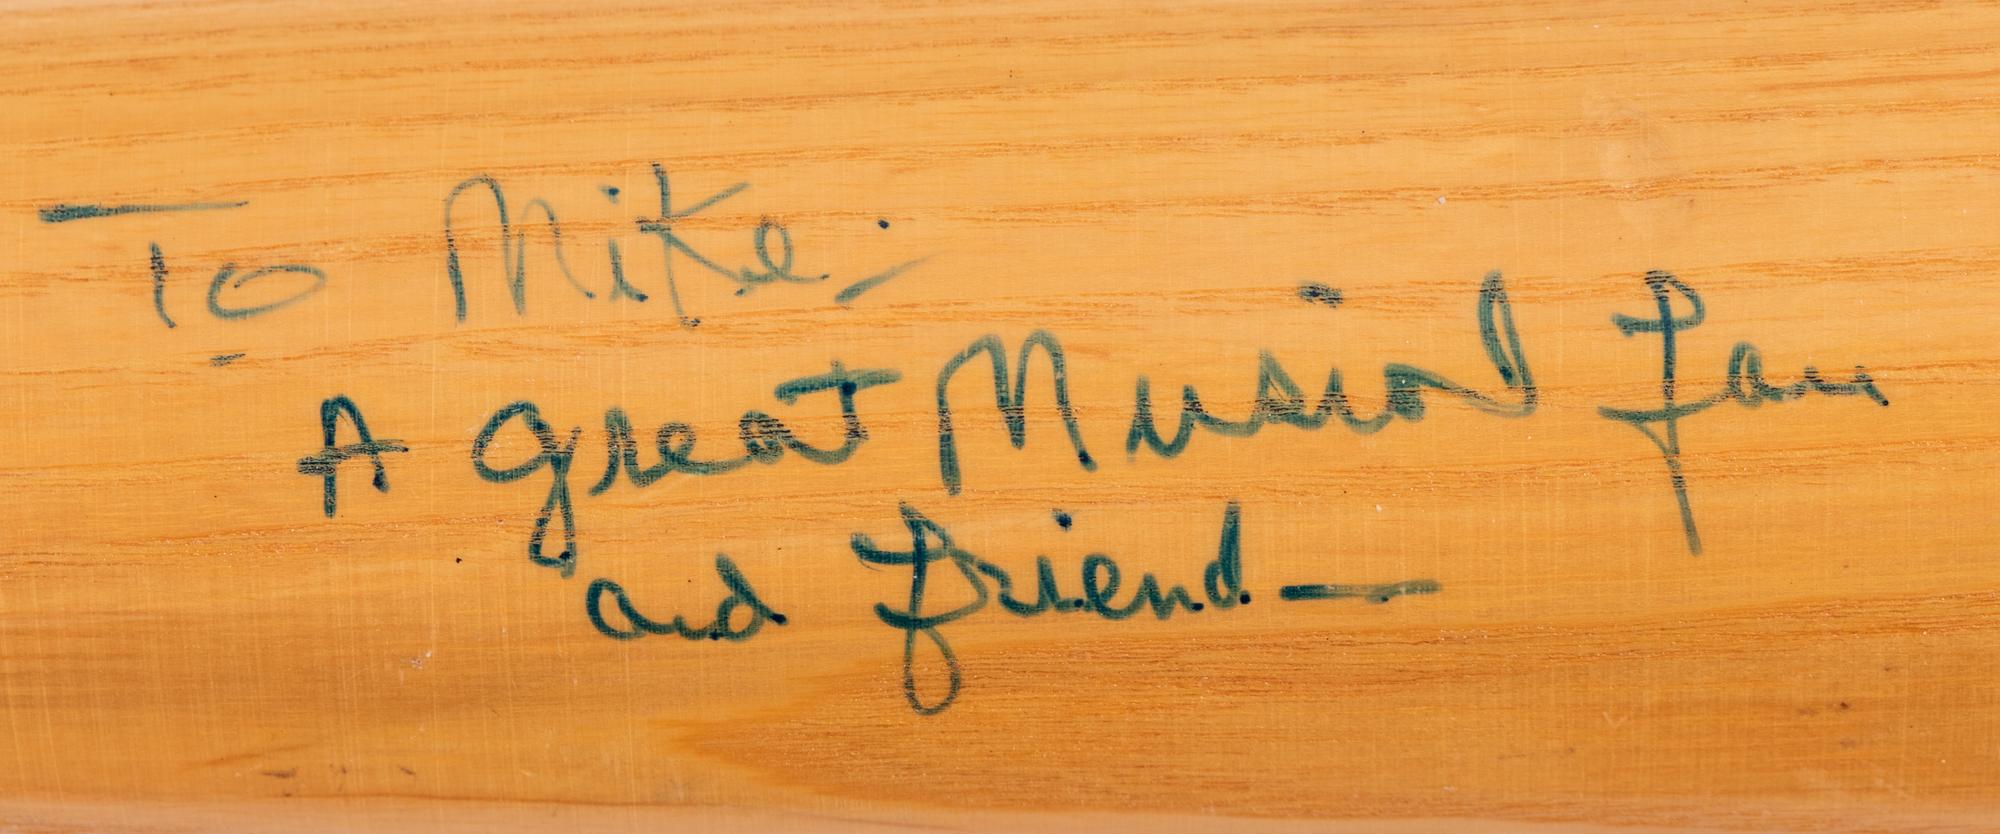 To Mike:
A great Musial fan
and friend—